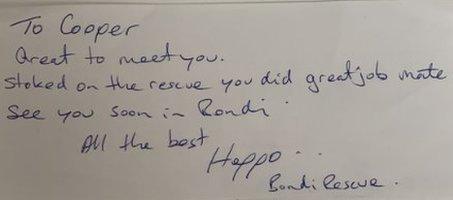 To Cooper
Great to meet you.
Stoked on the rescue you did great job mate
See you soon in Bondi.
All the best
Heppo..
Bondi Rescue.